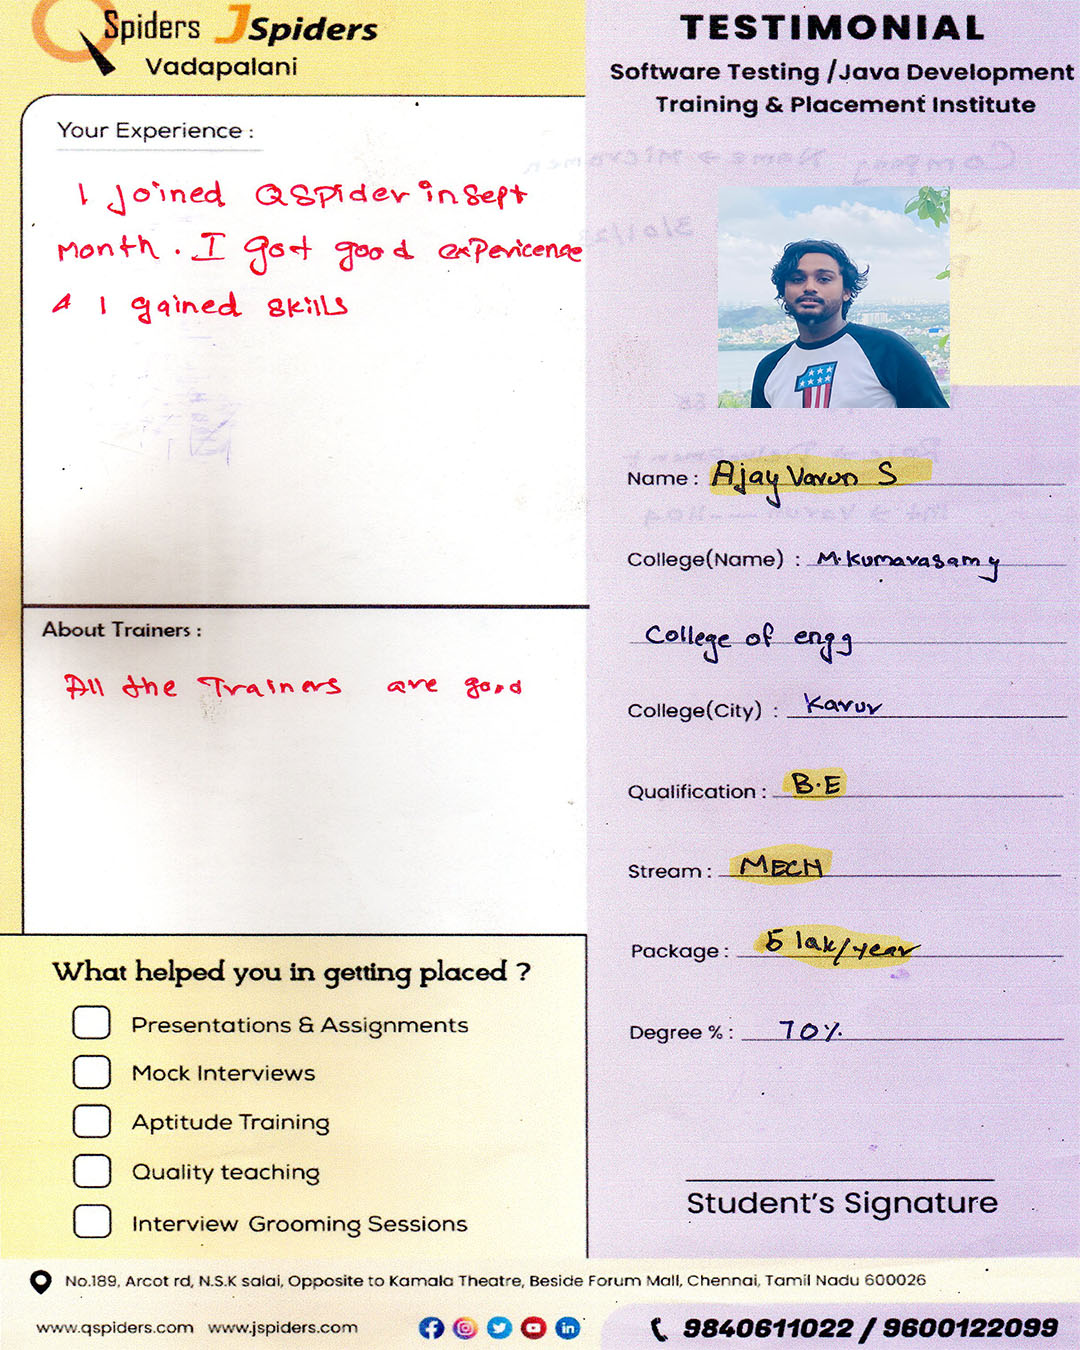 QSpiders JSpiders
Vadapalani
Your Experience :
I Joined QSpider in Sept
Month . I got good experience
& I gained skills
About Trainers :
All the Trainers are good
What helped you in getting placed ?
Presentations & Assignments
Mock Interviews
Aptitude Training
Quality teaching
Interview Grooming Sessions
TESTIMONIAL
Software Testing /Java Development
Training & Placement Institute
Name : Ajay Varun S
College(Name) : M.Kumarasamy
College of engg
College(City) : Karur
Qualification : B.E
Stream : MECH
Package : 5 lak/year
Degree % : 70%
Student's Signature
No.189, Arcot rd, N.S.K salai, Opposite to Kamala Theatre, Beside Forum Mall, Chennai, Tamil Nadu 600026
www.qspiders.com www.jspiders.com
9840611022 / 9600122099